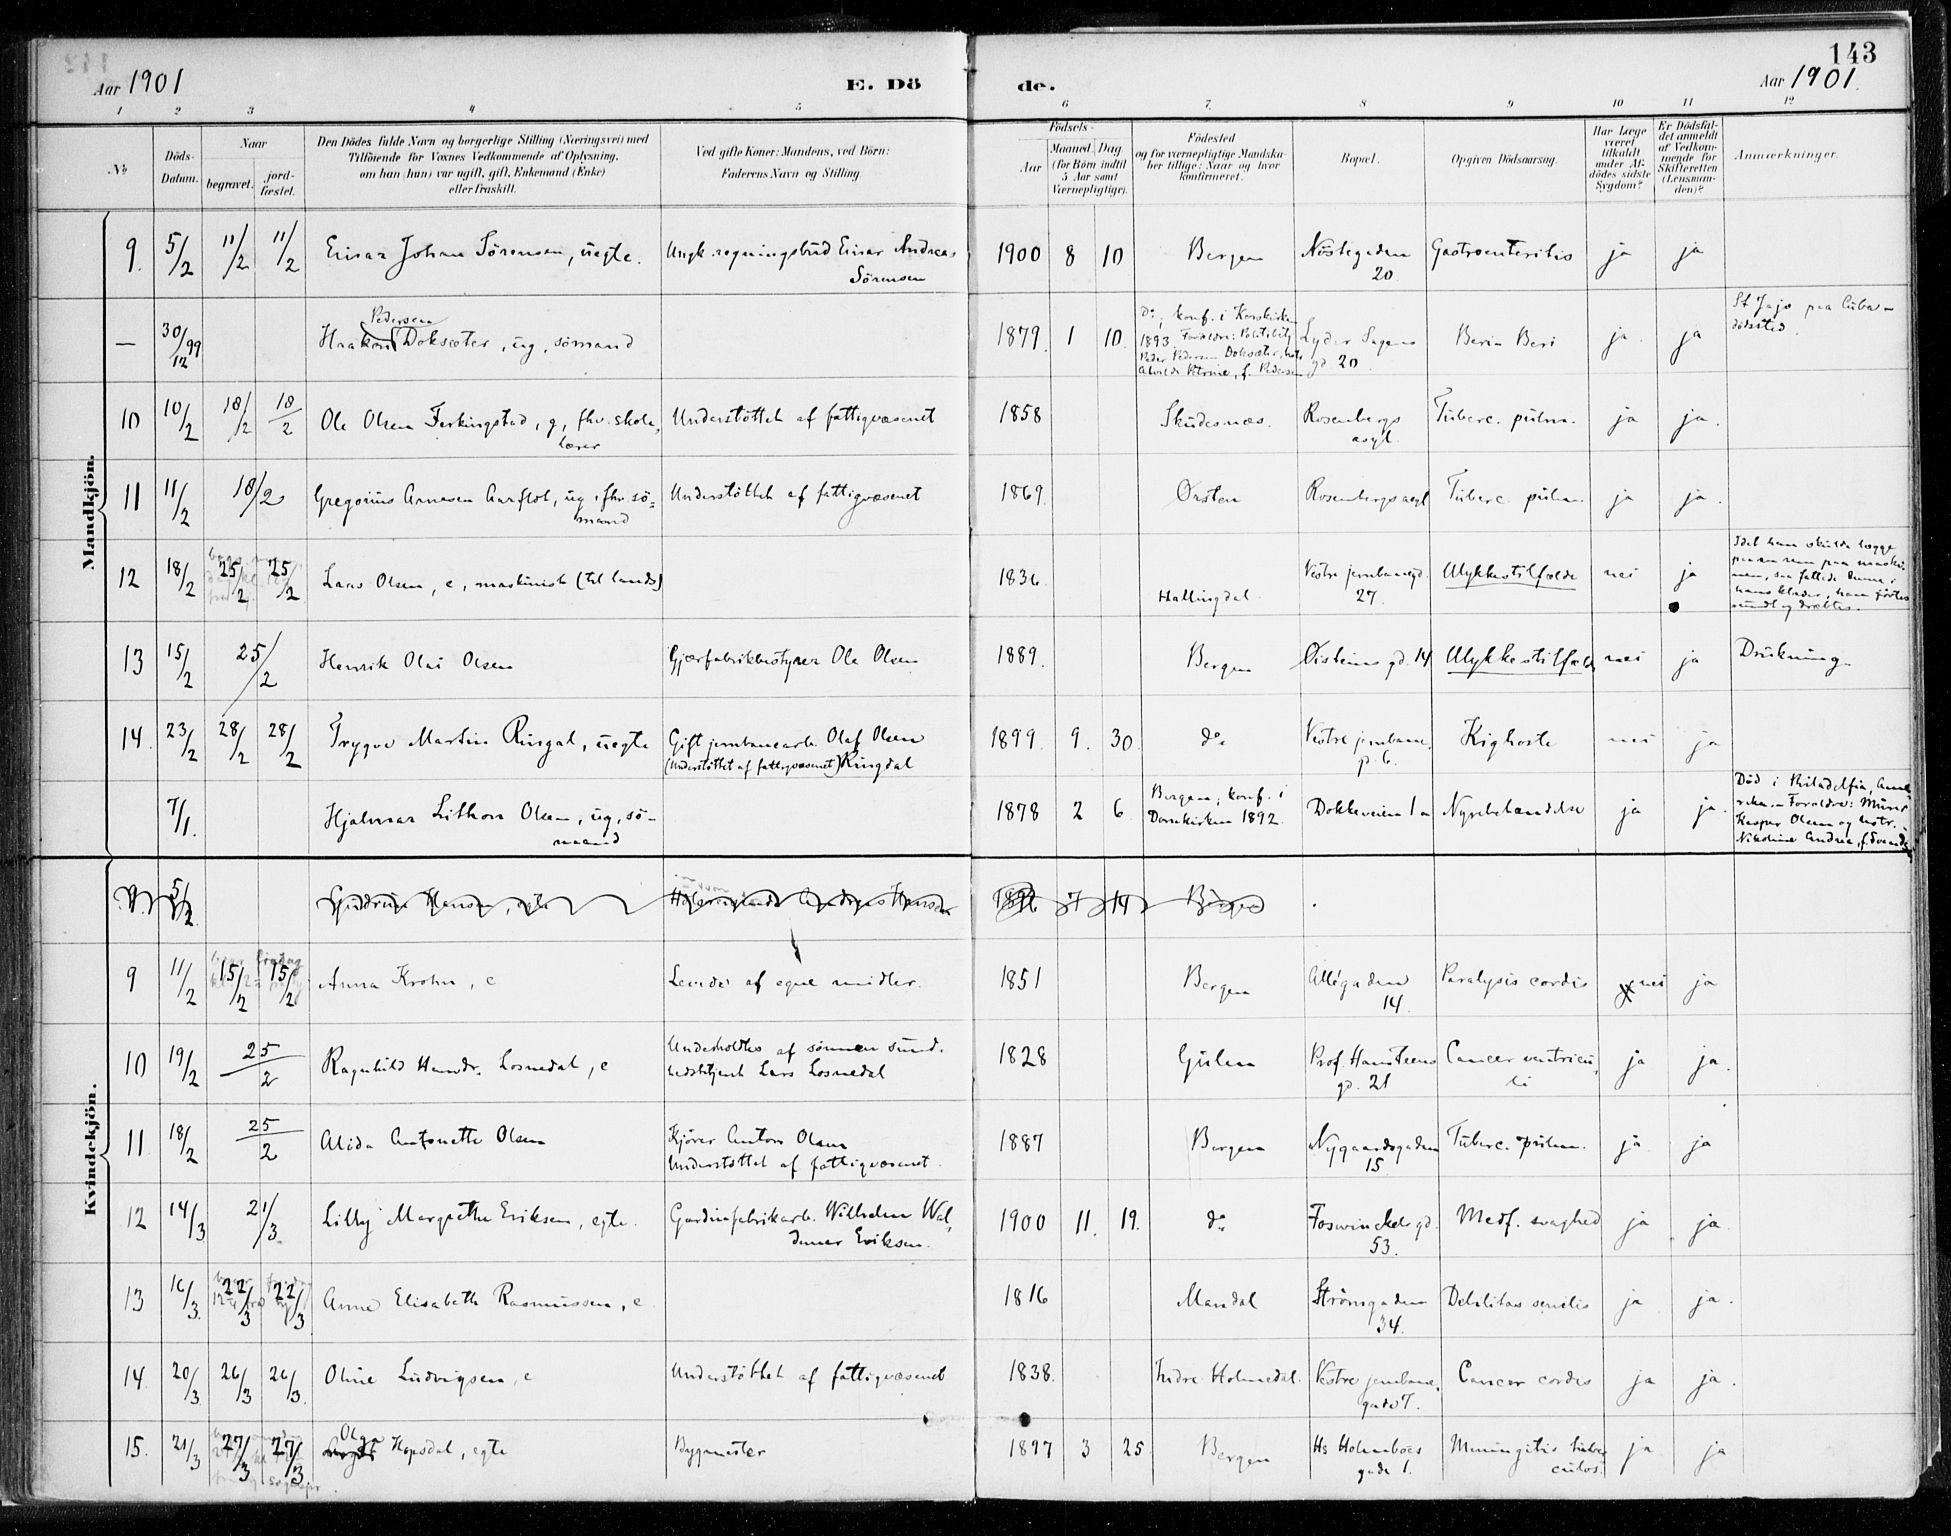 143
Aar 1901
E. Dö
de.
Aar 1901.
1 2 3 4 5 6 7. 8 9 10 11 12
No
Döds-
Datum.
Naar
begravet.
jord-
fæstet.
Den Dödes fulde Navn og borgerlige Stilling (Næringsvei) med
Tilföiende for Voxnes Vedkommende af Oplysning,
om han (hun) var ugift, gift, Enkemand (Enke)
eller fraskilt.
Ved gifte Koner: Mandens, ved Börn:
Faderens Navn og Stilling.
Födsels-
Aar
Maaned. Dag.
(for Börn indtil
5 Aar samt
Værnepligtige).
Födested
og for værnepligtige Mandska-
ber tillige: Naar og hvor
konfirmeret.
Bopæl.
Opgiven Dödsaarsag.
Har Læge
været
tilkaldt
under Af-
dödes sidste
Sygdom?
Er Dödsfal-
det anmeldt
af Vedkom-
mende for
Skifteretten
(Lensman-
den)?
Anmærkninger.
Mandkjön.
9. 5/2 11/2 11/2 Einar Johan Sörensen, uegte. Ungk. regningsbud Einar Andreas
Sörensen
1900 8 10 Bergen Nöstegaden
20
Gastroenteritis ja ja
— 30/12 99 Haakon Pedersen Doksæter, ug, sömand
1879. 1 10. do, konf. i Korskirken
1893. Forældre: Politibetj
Peder Pedersen Doksæter, hstr
Alvilde Petrine, f. Pedersen
Lyder Sagens
gd 20.
Beri Beri ja. ja
St Jago paa Cuba -
dödssted.
10 10/2 18/2 18/2 Ole Olsen Ferkingstad, g, fhv. skole-
lærer
Understöttet af fattigvæsenet
1858 Skudesnæs. Rosenbergs
asyl.
Tuberc. pulm. ja ja.
11 11/2 18/2 Gregorius Arnesen Aarflot, ug, fhv. sö-
mand
Understöttet af fattigvæsenet
1869. Örsten Rosenbergs asyl Tuberc. pulm. ja ja.
12 18/2 25/2 25/2 Lars Olsen, e, maskinist (til lands)
1836. Hallingdal. Vestre jernbanegd.
27.
Ulykkestilfælde nei ja
Idet han skulde lægge
paa en rem paa maski-
nen, saa fattede denne i
hans klæder, han förtes
rundt og dræbtes.
13 15/2 25/2 Henrik Olai Olsen Gjærfabrikbestyrer Ole Olsen
1889. Bergen Öisteins gd. 14 Ulykkestilfælde nei ja Drukning.
14. 23/2 28/2 28/2 Trygve Martin Ringdal, uegte Gift jernbanearb. Olaf Olsen
(Understöttet af fattigvæsenet) Ringdal
1899. 9. 30. do. Vestre jernbane-
gd. 6.
Kighoste nei ja
7/1. Hjalmar Lithon Olsen, ug, sö-
mand
1878 2 6 Bergen, konf. i
Domkirken 1892.
Dokkeveien 1 a Nyrebetændelse ja ja.
Död i Philadelfia, Ame-
rika. - Forældre: Murer
Kasper Olsen og hstr.
Nikoline Andrea, f. Svends
Kvindekjön.
9. 5/2 Gudrun Hansen, egte Andreas Hansen
1896 7 14 Bergen
9 11/2 15/2 15/2 Anna Krohn, e Levede af egne midler.
1851 Bergen Allégaden
14.
Paralysis cordis nei ja
10 19/2 25/2 Ragnhild Hendr. Losnedal, e Underholdtes af sönnen sund-
hedsbetjent Lars Losnedal
1828 Gulen Prof. Hansteens
gd. 21
Cancer ventricu-
li
ja ja.
11 18/2 25/2 Alida Antonette Olsen Kjörer Anton Olsen
Understöttet af fattigvæsenet.
1887 Bergen Nygaardsgaden
15.
Tuberc. pulm. ja ja
12 14/3 21/3 Lilly Margrethe Eriksen, egte. Gardinfabrikarb. Wilhelm Wal-
demar Eriksen.
1900 11. 19. do. Foswinckels gd.
53.
Medf. svaghed ja ja.
13 16/3. 22/3 22/3 Anne Elisabeth Rasmussen, e
1816 Mandal Strömgaden
34.
Debilitas senilis ja ja.
14. 20/3. 26/3 26/3. Oline Ludvigsen, e Understöttet af fattigvæsenet
1838. Indre Holmedal. Vestre jernbane-
gade 7.
Cancer cordis ja ja.
15. 21/3 27/3 27/3. Olga Hopsdal, egte Bygmester
1897 3 25 Bergen Hs Holmboes
gade 1.
Meningitis tuber
culos.
ja ja